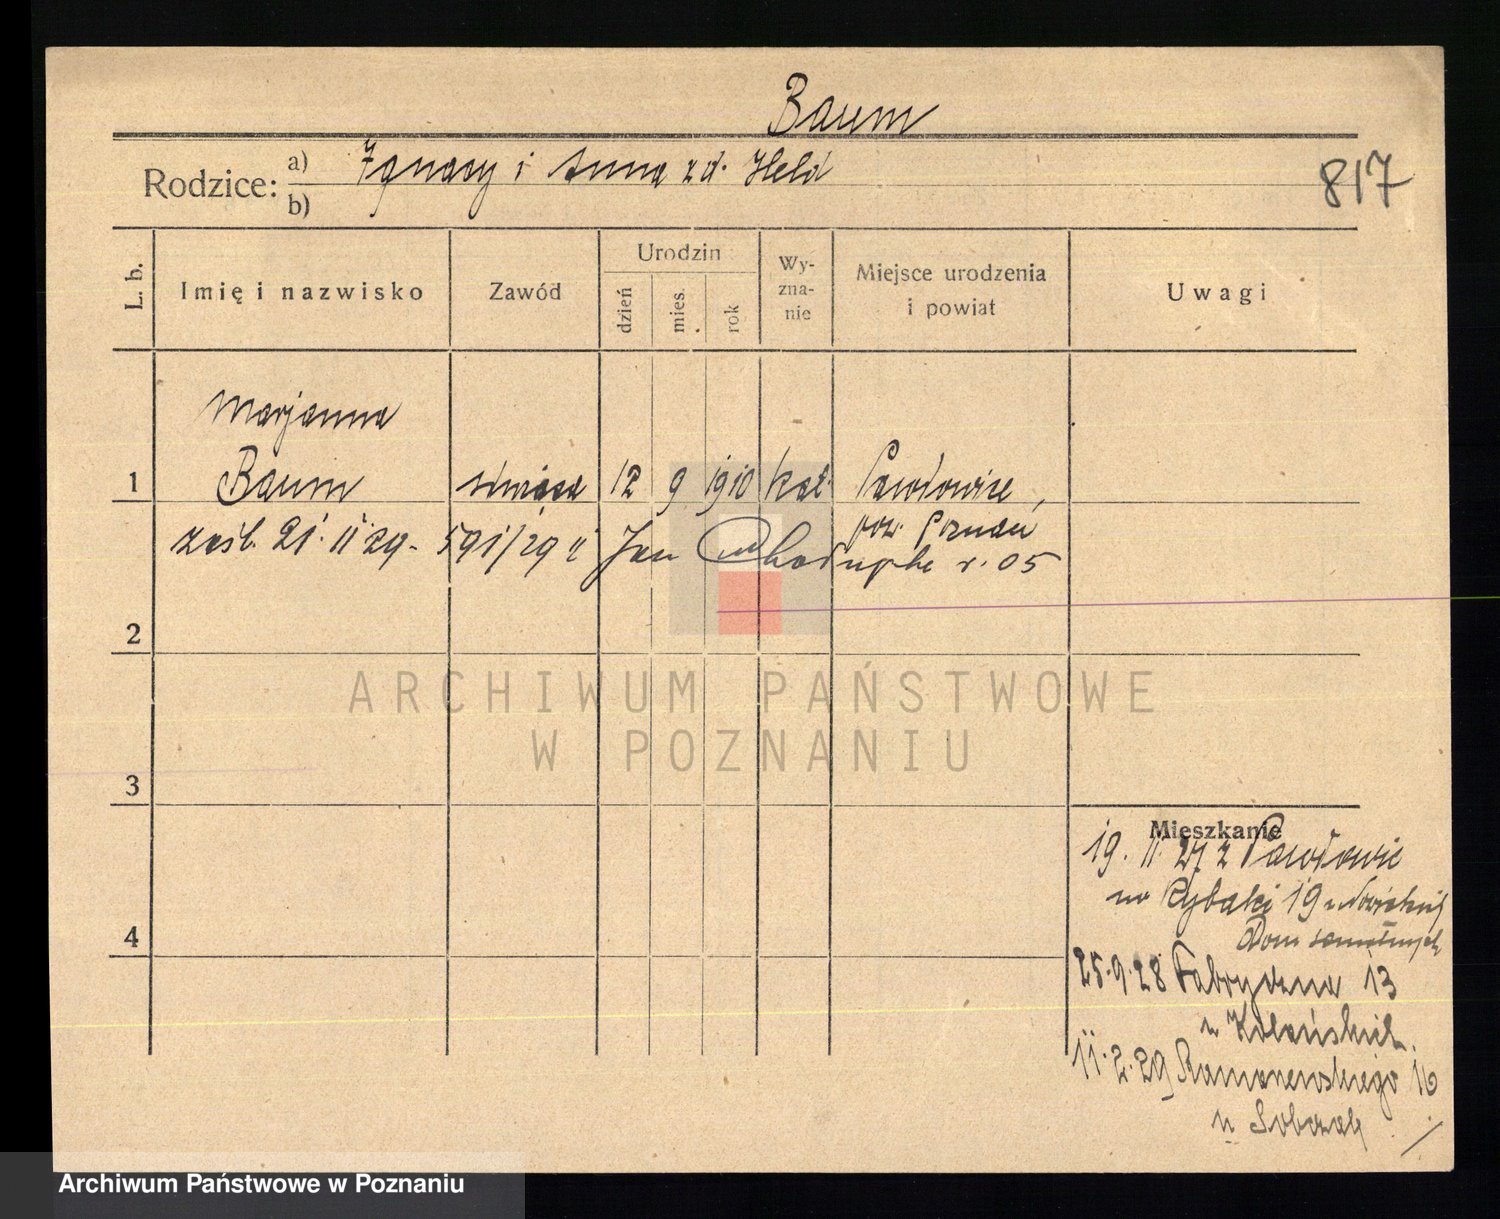 Baum
Rodzice: a) Ignacy i Anna z d. Held
b)
817
L. b.
Imię i nazwisko
Zawód
Urodzin
dzień
mies.
rok
Wy-
zna-
nie
Miejsce urodzenia
i powiat
Uwagi
Marjanna
1 Baum służąca 12 9 1910 kat. Pawłowice,
pow. Poznań
zaśl. 21. II 29 - 591/29 Jan r. 05
2
ARCHIWUM PAŃSTWOWE
W POZNANIU
3
Mieszkanie
19. 11. 27 z Pawłowic
na Rybaki 19
Dom
4
25.9.28 Fabryczna 13
u
11.2.29 16
u Sobczak
Archiwum Państwowe w Poznaniu